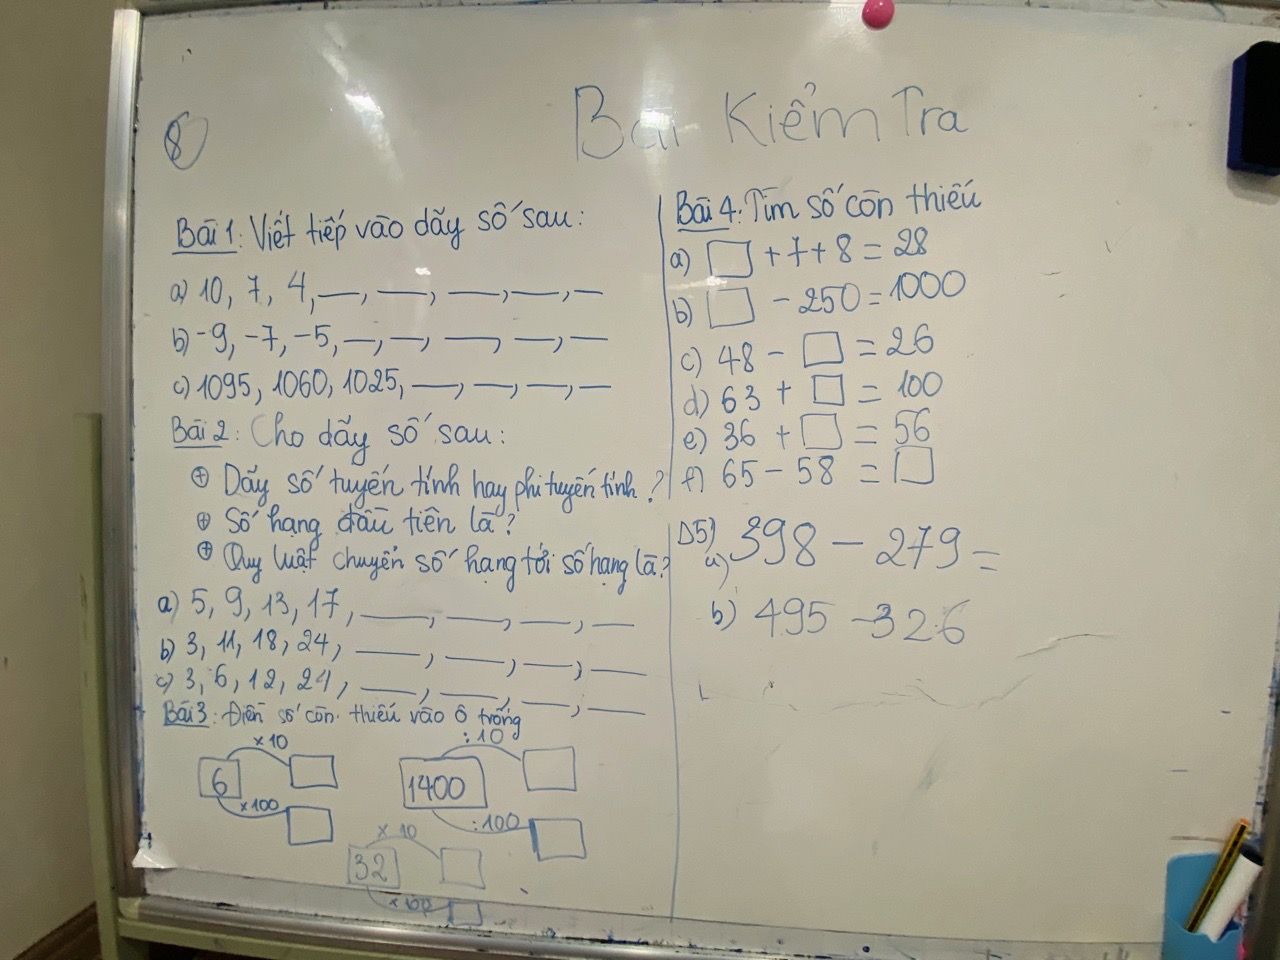 8
Bài Kiểm Tra
Bài 1: Viết tiếp vào dãy số sau:
a) 10, 7, 4, __, __, __, __, __
b) -9, -7, -5, __, __, __, __, __
c) 1095, 1060, 1025, __, __, __, __
Bài 2: Cho dãy số sau:
⊕ Dãy số tuyến tính hay phi tuyến tính?
⊕ Số hạng đầu tiên là?
⊕ Quy luật chuyển số hạng tới số hạng là?
a) 5, 9, 13, 17, __, __, __, __
b) 3, 11, 18, 24, __, __, __, __
c) 3, 6, 12, 24, __, __, __, __
Bài 3: Điền số còn thiếu vào ô trống
x10
6 □
x100
□
:10
1400 □
:100
□
x 10
32 □
x 100
□
Bài 4: Tìm số còn thiếu
a) □ + 7 + 8 = 28
b) □ - 250 = 1000
c) 48 - □ = 26
d) 63 + □ = 100
e) 36 + □ = 56
f) 65 - 58 = □
B5)
a) 398 - 279 =
b) 495 - 326